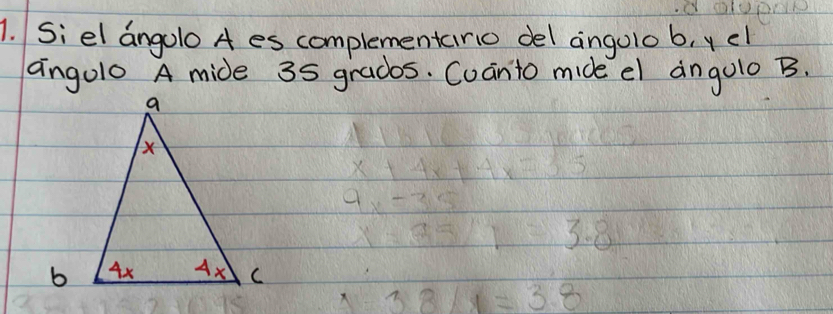 1. Si el ángulo A es complementario del ángulo b, y el
ángulo A mide 35 grados. Cuánto mide el ángulo B.
a
x
x + 4x + 4x = 35
9x = 35
3.8
b 4x 4x c
3.8 / 1 = 3.8